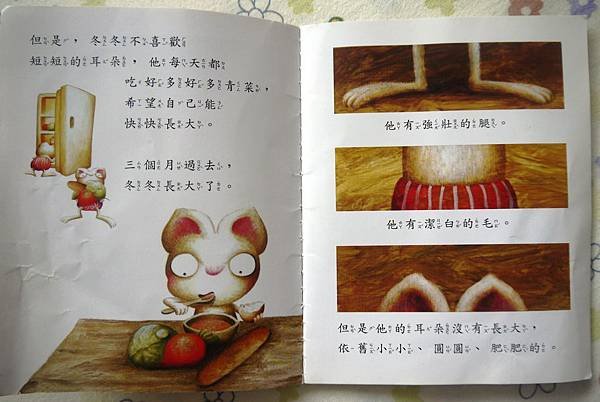 但是，冬冬不喜歡
短短的耳朵，他每天都
吃好多好多青菜，
希望自己能
快快長大。
三個月過去，
冬冬長大了。
他有強壯的腿。
他有潔白的毛。
但是他的耳朵沒有長大，
依舊小小、圓圓、肥肥的。